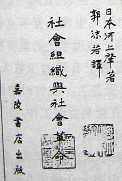 日本河上肇著
郭沫若譯
社會組織與社會革命
嘉陵書店出版